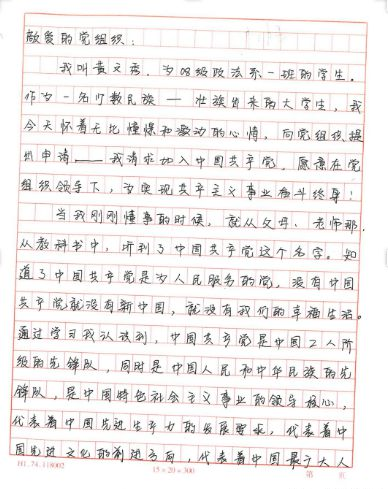 敬爱的党组织：
我叫黄文秀，为08级政法系一班的学生。
作为一名少数民族——壮族出来的大学生，我
今天怀着无比憧憬和激动的心情，向党组织提
出申请——我请求加入中国共产党，愿意在党
组织领导下，为实现共产主义事业奋斗终身！
当我刚刚懂事的时候，就从父母、老师那，
从教科书中，听到了中国共产党这个名字。知
道了中国共产党是为人民服务的党，没有中国
共产党就没有新中国，就没有我们的幸福生活。
通过学习我认识到，中国共产党是中国工人阶
级的先锋队，同时是中国人民和中华民族的先
锋队，是中国特色社会主义事业的领导核心，
代表着中国先进生产力的发展要求，代表着中
国先进文化的前进方向，代表着中国最广大人
H1.74.118002 15×20=300 第 页